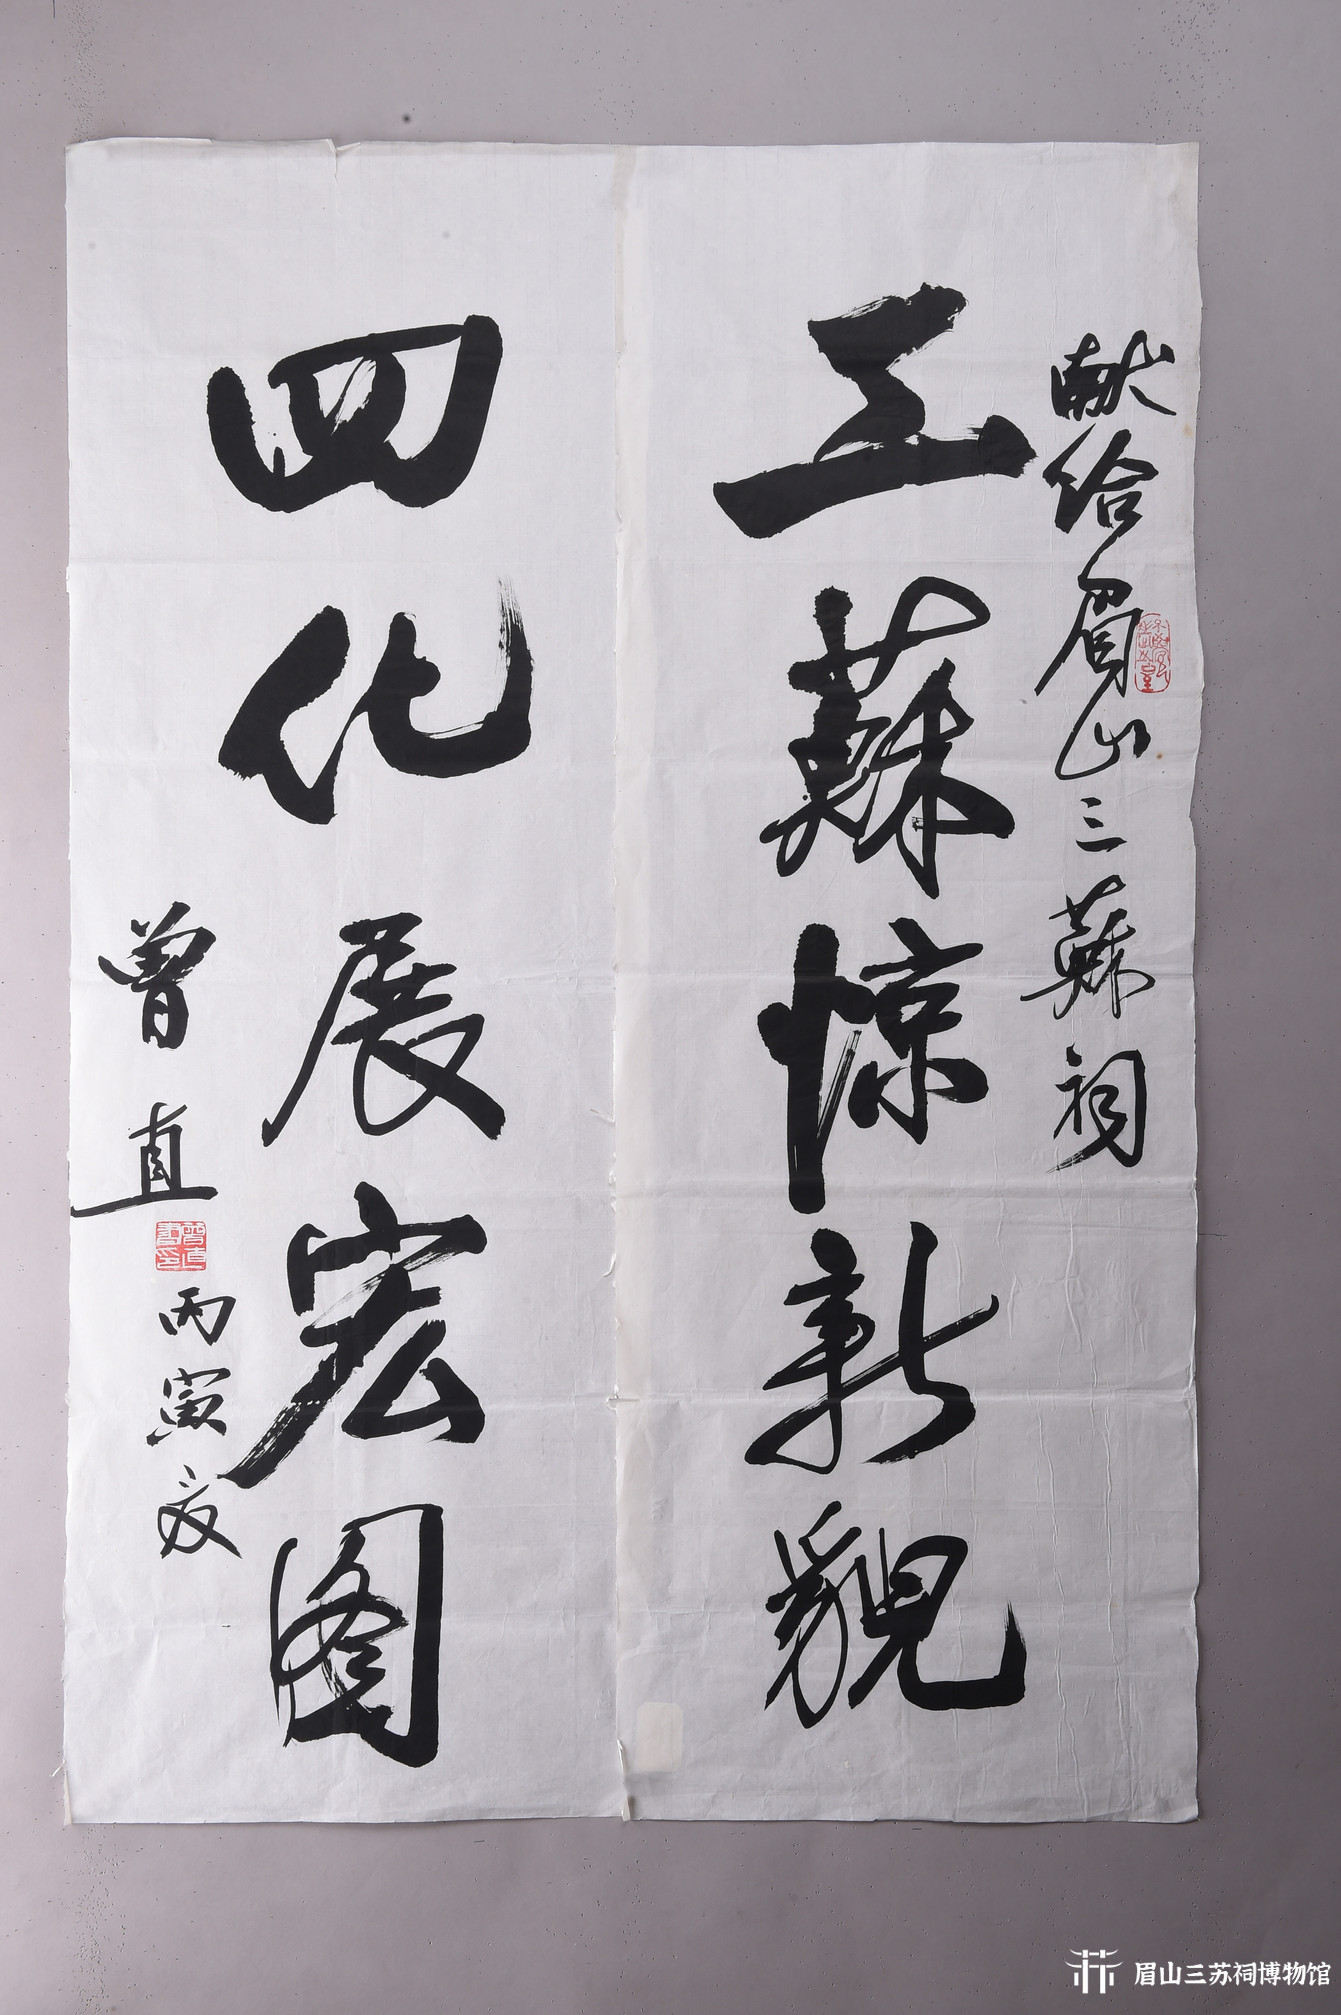 献给眉山三蘇祠
三蘇惊新貌
四化展宏图
曾直
曾直書印
丙寅夏
眉山三苏祠博物馆